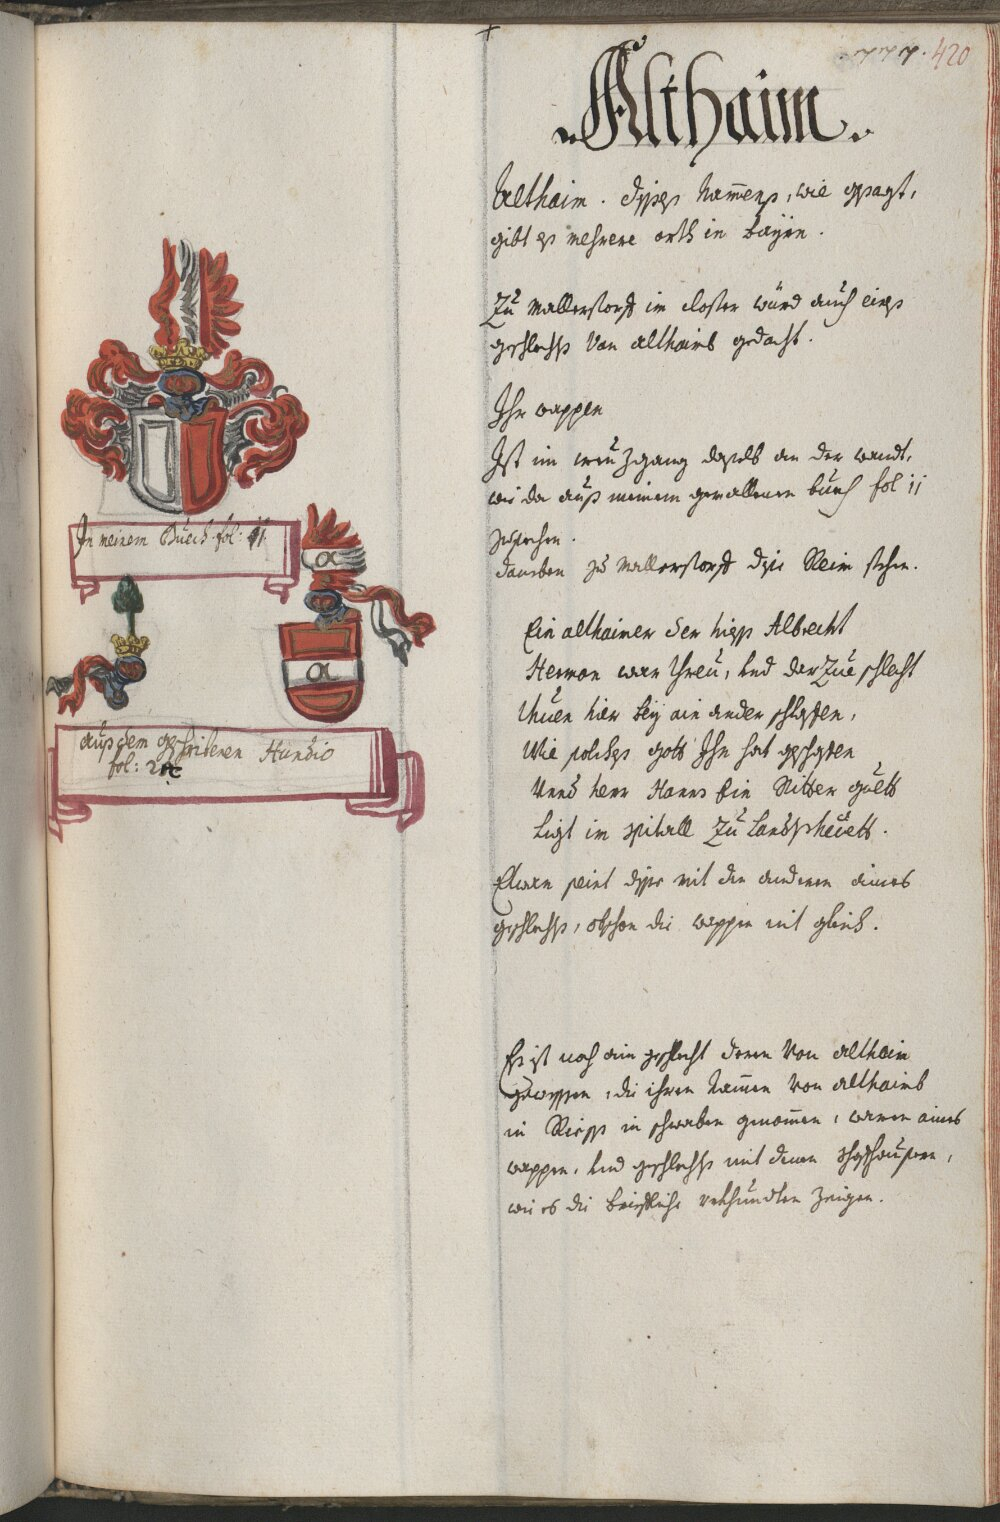 777. 420
Althaim.
Althaim. dises Nam̄ens, wie gesagt,
gibt es mehrere orth in Baÿrn.
Zu Mallerstorff im closter würd auch eines
geschlechts Von althaimb gedacht.
Ihr wappen
Ist im creuzgang daselb an der wandt,
wie da auß meinem gemallenen buech fol 11
zusechen.
daneben zu Mallerstorff dise Reim stehen.
Ein althaimer der hiess Albrecht
Herman war threu, und darzue schlecht
thuen hier beÿ ain ander schlaffen,
Wie solches gott Ihn hat geschaffen
Unnd herr Hanns Ein Ritter guett
Ligt im spitall Zu Landtshuett.
seint dise mit den anderen aines
geschlechts, obschon die wappen nit gleich.
Es ist noch ain geschlecht deren Von althaim
gewessen, die ihren Nam̄en Von althaimb
in Riess in schwaben genom̄en, waren aines
wappen, und geschlechts mit denen
wie es die briefliche urkhundten Zeigen.
In meinem Buech fol: 11.
a
a
auß dem geschribenen Hundio
fol: 2